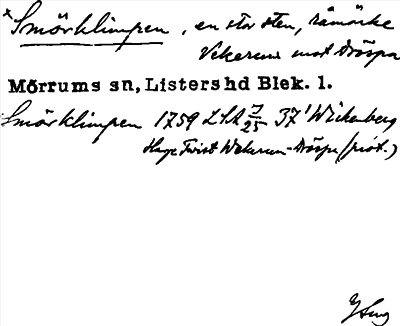 * Smörklimpen, en stor sten, råmärke
Vekerum mot Dröspe
Mörrums sn, Listers hd Blek. l.
Smörklimpen 1759 LSA 7/25 37' Wickenberg
Hage Twist Wekerum-Dröspe (prot.)